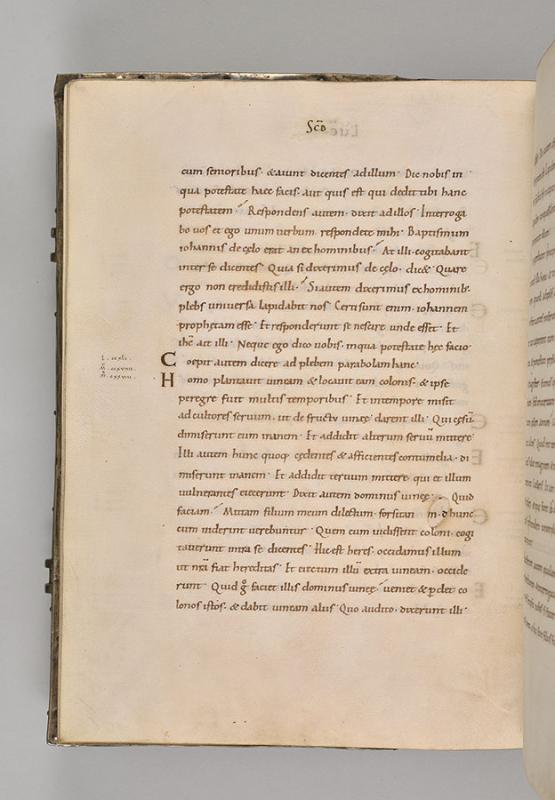 Scđ
cum senioribus · & aiunt dicentes ad illum · Dic nobis in
qua potestate haec facis · aut quis est qui dedit tibi hanc
potestatem · Respondens autem · dixit ad illos · Interroga
bo vos et ego unum verbum · respondete mihi · Baptismum
iohannis de cęlo erat an ex hominibus · At illi · cogitabant
inter se dicentes · Quia si dixerimus de cęlo · dic& · Quare
ergo non credidistis illi · Si autem dixerimus ex hominib;
plebs universa lapidabit nos · Certi sunt enim · iohannem
prophetam esse · Et responderunt se nescire unde esset · Et
ihc̄ ait illi · Neque ego dico nobis · in qua potestate hęc facio ·
Coepit autem dicere ad plebem parabolam hanc ·
Homo plantavit vineam & locavit eam colonis · & ipse
peregre fuit multis temporibus · Et in tempore misit
ad cultores servum · ut de fructu vineę darent illi · Qui cęsū
dimiserunt eum inanem · Et addidit alterum servū mittere
Illi autem hunc quoq; cędentes & afficientes contumelia · di
miserunt inanem · Et addidit tertium mittere · qui et illum
vulnerantes eiecerunt · Dixit autem dominus vineę · Quid
faciam · Mittam filium meum dilectum · forsitan hunc
cum viderint verebuntur · Quem cum vidissent coloni · cogi
taverunt intra se dicentes · Hic est heres · occidamus illum
ut nr̄a fiat hereditas · Et eiectum illū extra vineam · occide
runt · Quid g° faciet illis dominus vineę · veniet & pdet co
lonos istos · & dabit vineam aliis · Quo audito · dixerunt illi ·